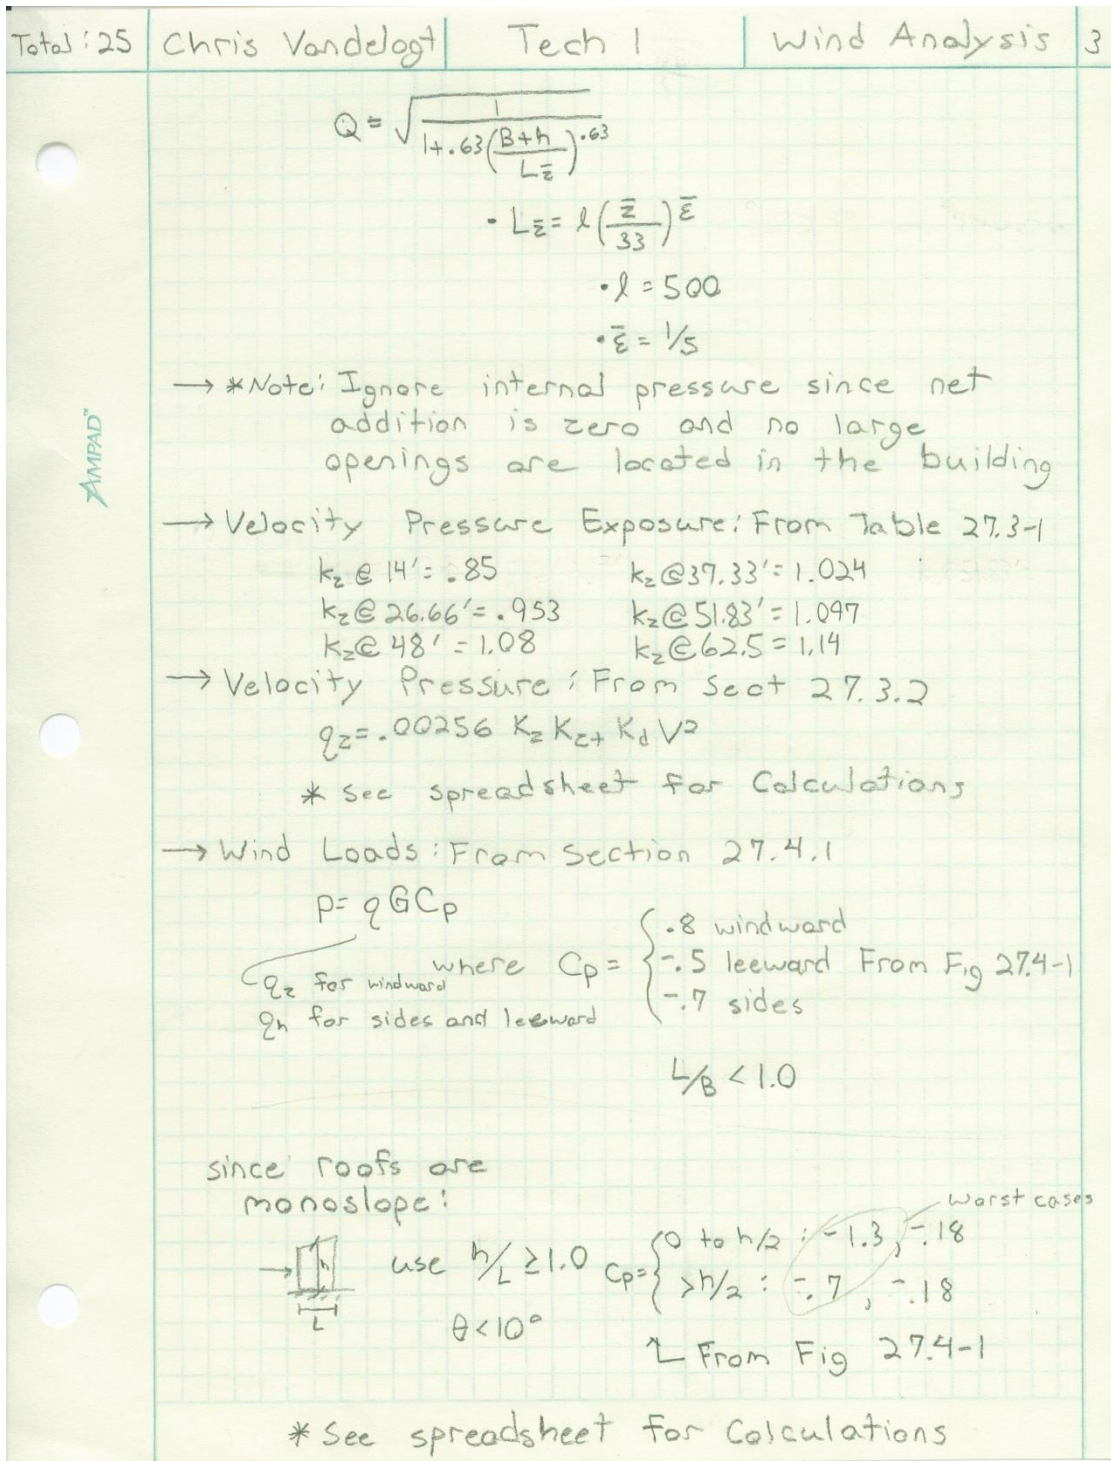 Total: 25 Chris Vandelogt Tech 1 Wind Analysis 3
Q = √(1/(1+.63((B+h)/Lz̄)^.63))
• Lz̄ = l(z̄/33)^ε̄
• l = 500
• ε̄ = 1/5
→ *Note: Ignore internal pressure since net
addition is zero and no large
openings are located in the building
AMPAD™
→ Velocity Pressure Exposure: From Table 27.3-1
kz @ 14' = .85 kz @ 37.33' = 1.024
kz @ 26.66' = .953 kz @ 51.83' = 1.097
kz @ 48' = 1.08 kz @ 62.5 = 1.14
→ Velocity Pressure: From Sect 27.3.2
qz = .00256 Kz Kzt Kd V²
* See spreadsheet for Calculations
→ Wind Loads: From Section 27.4.1
p = qGCp
qz for windward
qh for sides and leeward
where Cp = { .8 windward
-.5 leeward From Fig 27.4-1
-.7 sides
L/B < 1.0
since roofs are
monoslope:
h
L
use h/L ≥ 1.0
θ < 10°
worst cases
Cp = { 0 to h/2 : -1.3, -.18
> h/2 : -.7, -.18
From Fig 27.4-1
* See spreadsheet for Calculations